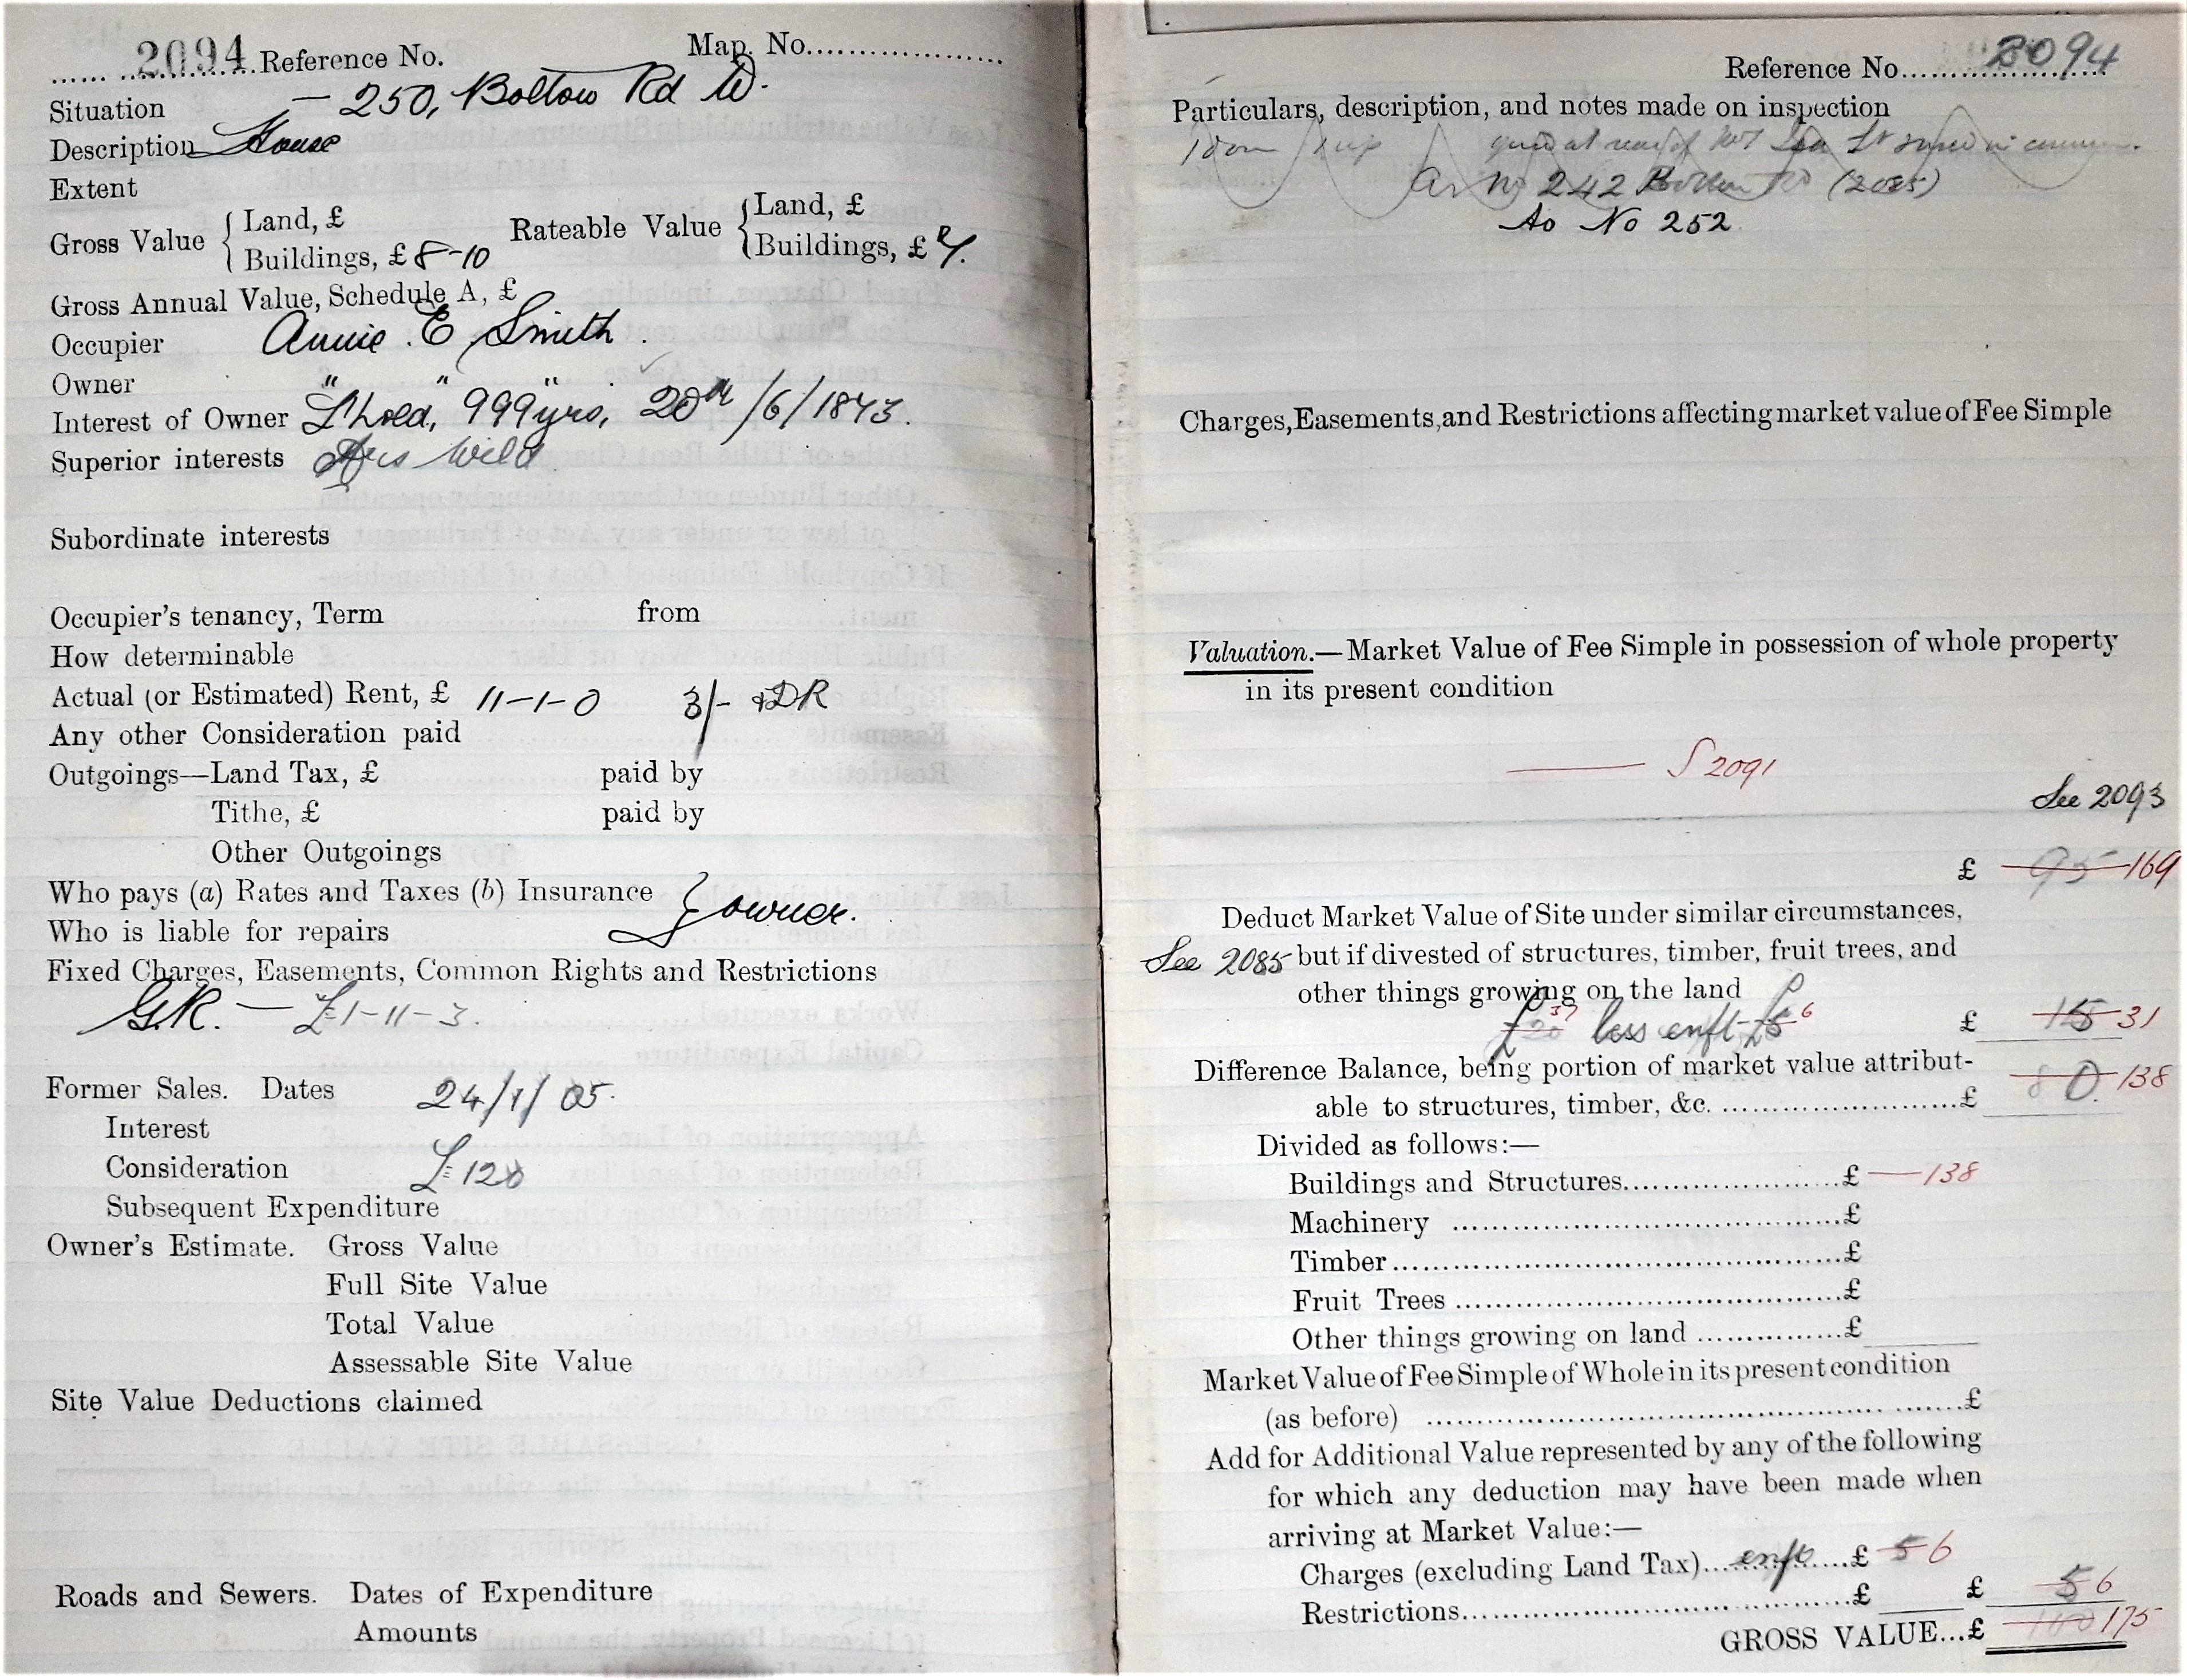 2094 Reference No. Map. No.
Situation — 250, Bolton Rd W.
Description House
Extent
Gross Value { Land, £ Rateable Value { Land, £
Buildings, £ 8-10 Buildings, £
Gross Annual Value, Schedule A, £
Occupier Annie E Smith.
Owner " " "
Interest of Owner L'hold, 999 yrs, 20th/6/1873.
Superior interests Wild
Subordinate interests
Occupier's tenancy, Term from
How determinable
Actual (or Estimated) Rent, £ 11-1-0 3/- & DR
Any other Consideration paid
Outgoings—Land Tax, £ paid by
Tithe, £ paid by
Other Outgoings
Who pays (a) Rates and Taxes (b) Insurance } owner.
Who is liable for repairs
Fixed Charges, Easements, Common Rights and Restrictions
G.R. — £1-11-3.
Former Sales. Dates 24/1/05.
Interest
Consideration £120
Subsequent Expenditure
Owner's Estimate. Gross Value
Full Site Value
Total Value
Assessable Site Value
Site Value Deductions claimed
Roads and Sewers. Dates of Expenditure
Amounts
Reference No. 2094
Particulars, description, and notes made on inspection
at rear of in common.
As No 242 Bolton Rd (2085)
As No 252
Charges, Easements, and Restrictions affecting market value of Fee Simple
Valuation.—Market Value of Fee Simple in possession of whole property
in its present condition
— S 2091
See 2093
£ 95 169
Deduct Market Value of Site under similar circumstances,
See 2085 but if divested of structures, timber, fruit trees, and
other things growing on the land
£20 37 less enft £5 6 £ 15 31
Difference Balance, being portion of market value attribut-
able to structures, timber, &c. £ 80 138
Divided as follows:—
Buildings and Structures £ — 138
Machinery £
Timber £
Fruit Trees £
Other things growing on land £
Market Value of Fee Simple of Whole in its present condition
(as before) £
Add for Additional Value represented by any of the following
for which any deduction may have been made when
arriving at Market Value:—
Charges (excluding Land Tax) enft £ 5 6
Restrictions £ £ 5 6
GROSS VALUE...£ 100 175